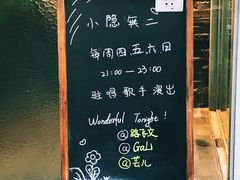 小隐無二
每周四五六日
21:00—23:00
驻唱歌手演出
Wonderful Tonight!
@路文
@GaLi
@芸儿